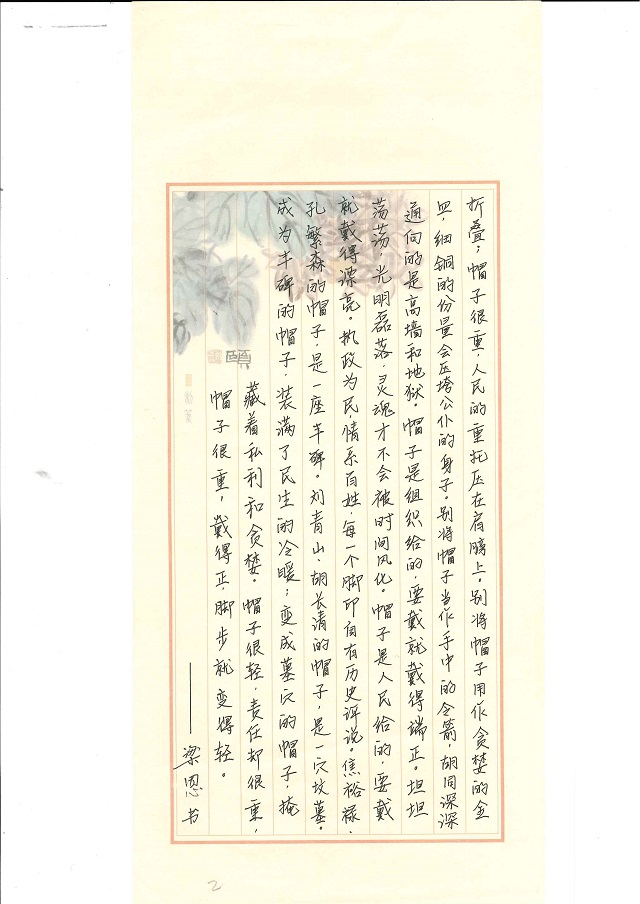 折叠；帽子很重，人民的重托压在肩膀上。别将帽子用作贪婪的金
皿，细铜的份量会压垮公仆的身子。别将帽子当作手中的令箭，胡同深深
通向的是高墙和地狱。帽子是组织给的，要戴就戴得端正。坦坦
荡荡，光明磊落，灵魂才不会被时间风化。帽子是人民给的，要戴
就戴得漂亮。执政为民，情系百姓，每一个脚印自有历史评说。焦裕禄、
孔繁森的帽子，是一座丰碑。刘青山、胡长清的帽子，是一穴坟墓。
成为丰碑的帽子，装满了民生的冷暖；变成墓穴的帽子，掩
藏着私利和贪婪。帽子很轻，责任却很重，
帽子很重，戴得正，脚步就变得轻。
——梁恩书
頤
2